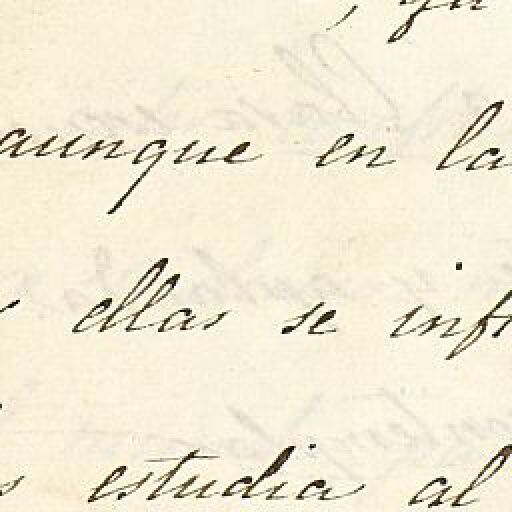 aunque en la
ellas se inf
estudia al